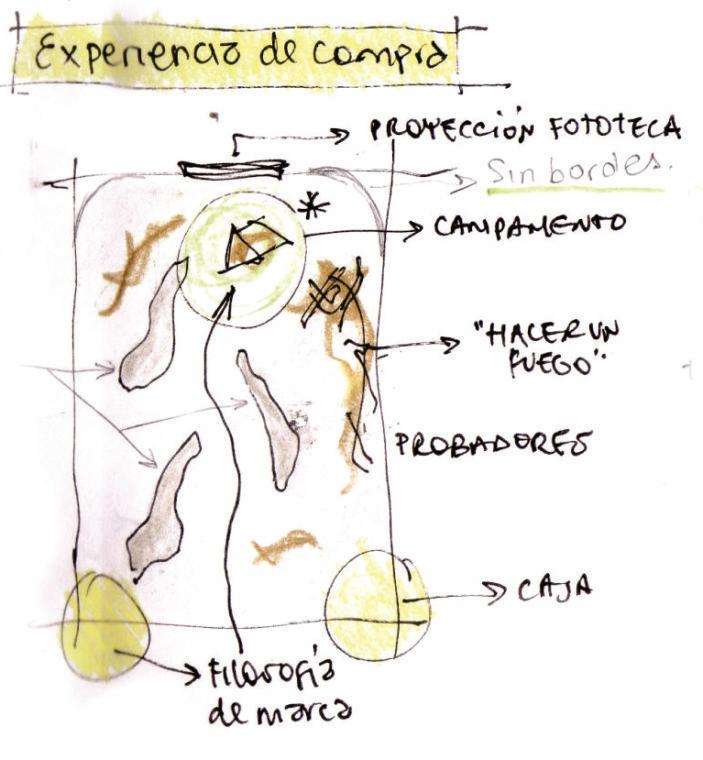 Experiencia de compra
PROYECCIÓN FOTOTECA
Sin bordes.
*
CAMPAMENTO
"HACER UN
FUEGO".
PROBADORES
CAJA
Filosofía
de marca